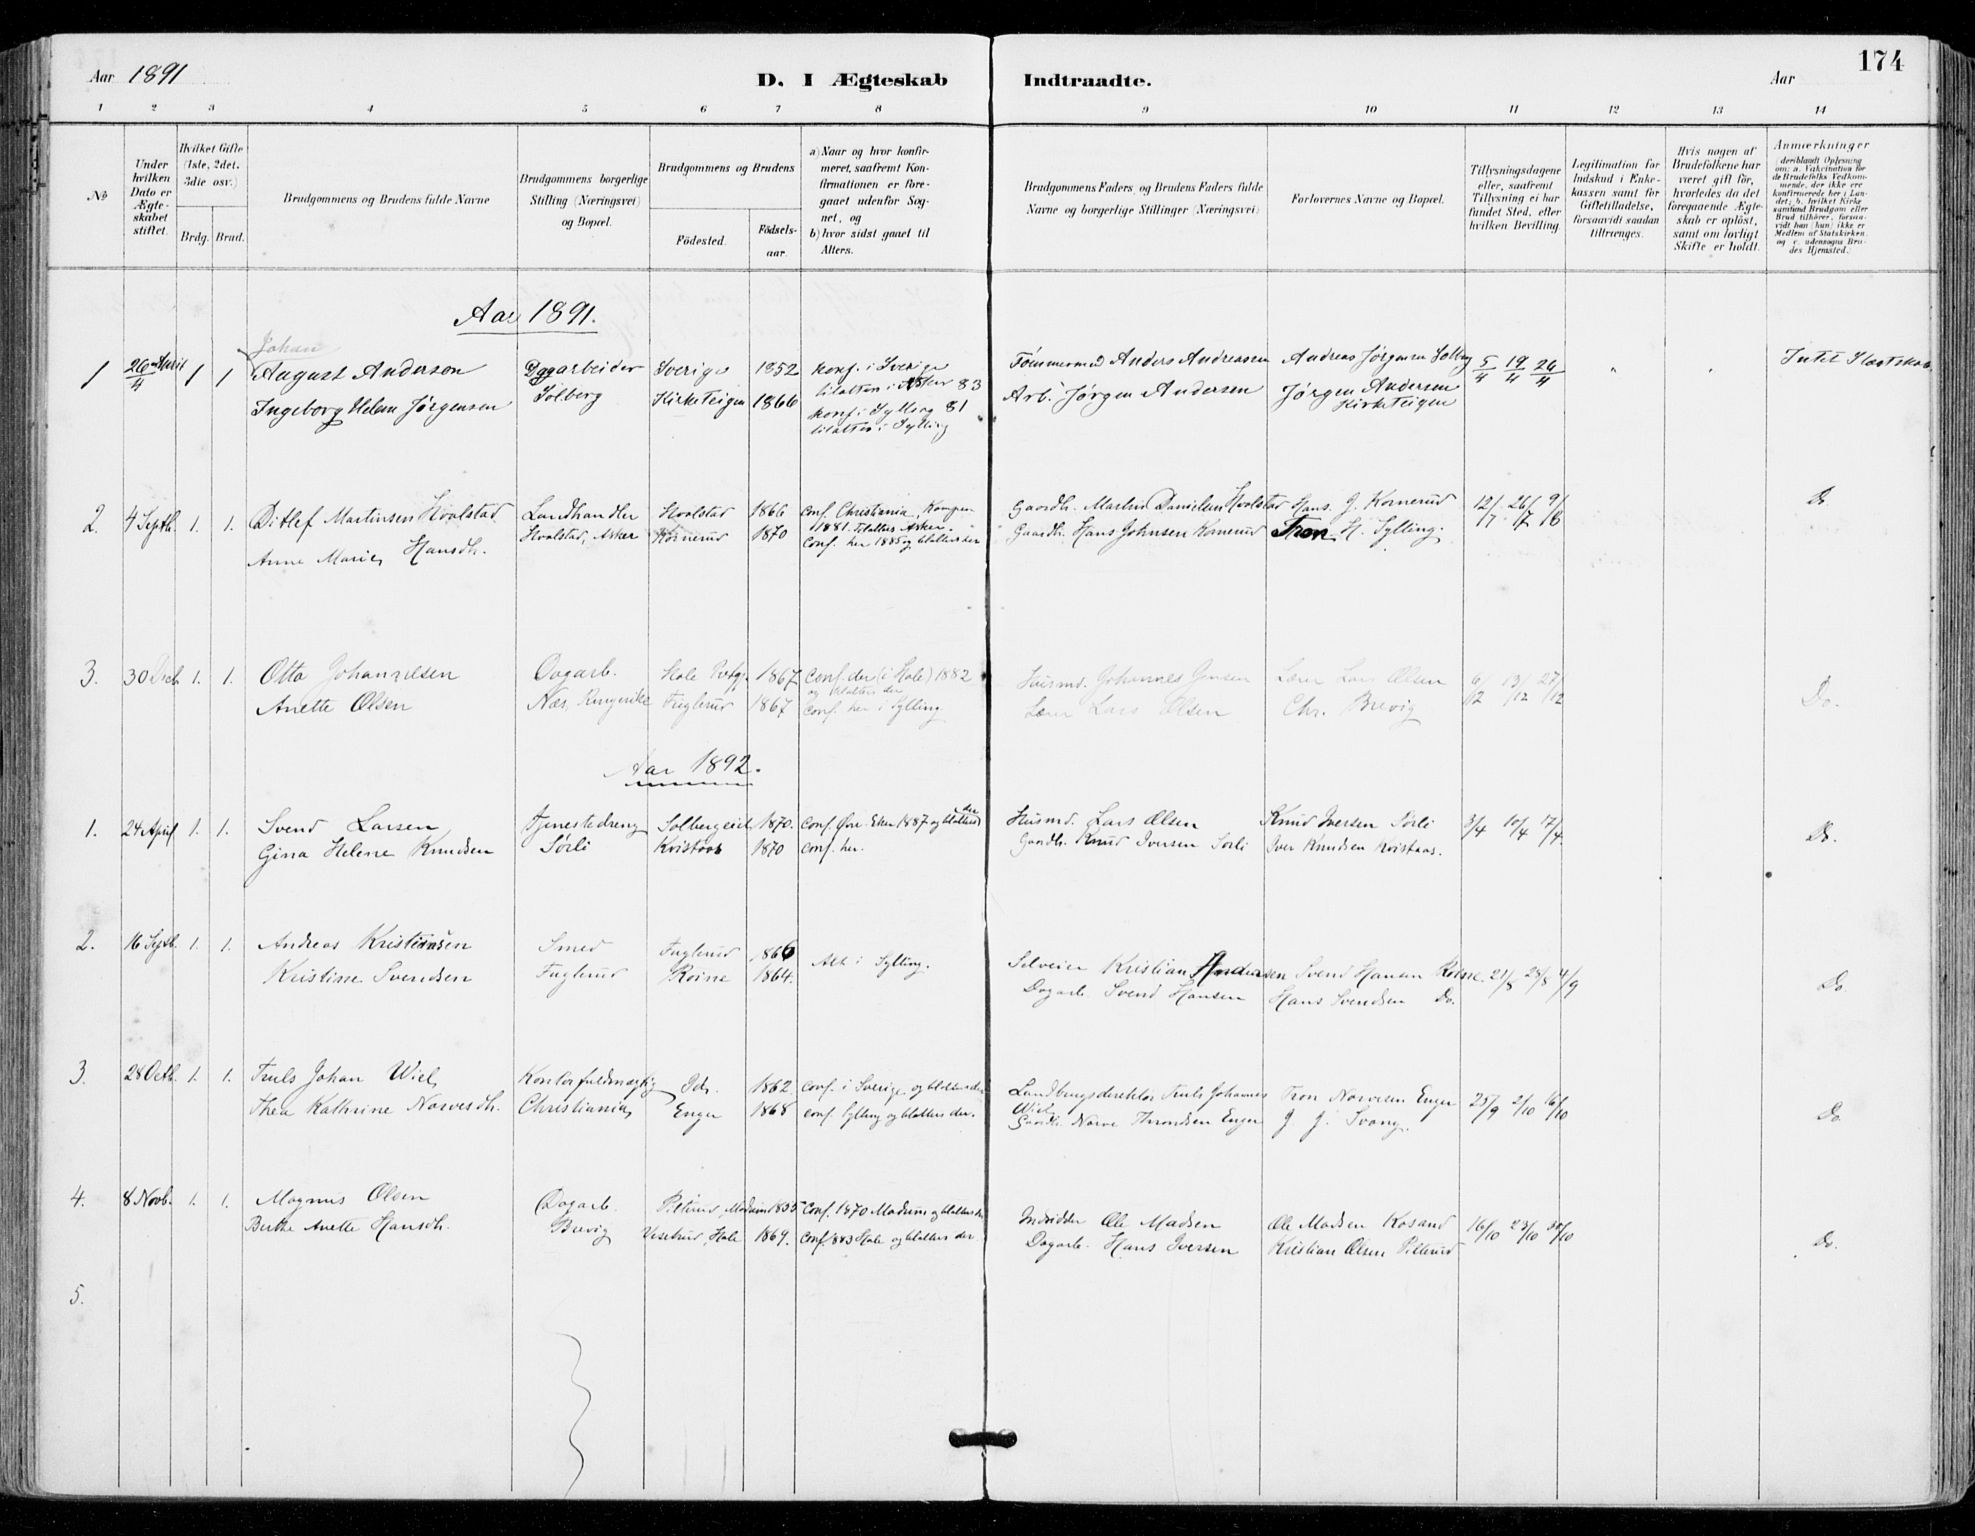 Aar 1891
D. I Ægteskab Indtraadte.
Aar
174
1 2 3 4 5 6 7 8 9 10 11 12 13 14
No
Under hvilken Dato er Ægteskabet stiftet.
Hvilket Gifte (1ste, 2det, 3die osv.)
Brdg. Brud.
Brudgommens og Brudens fulde Navne
Brudgommens borgerlige Stilling (Næringsvei) og Bopæl.
Brudgommens og Brudens
Födested. Födsels-aar.
a) Naar og hvor konfirmeret, saafremt Konfirmationen er foregaaet udenfor Sognet, og
b) hvor sidst gaaet til Alters.
Brudgommens Faders, og Brudens Faders fulde Navne og borgerlige Stillinger (Næringsvei)
Forlovernes Navne og Bopæl.
Tillysningsdagene eller, saafremt Tillysning ei har fundet Sted, efter hvilken Bevilling
Legitimation for Indskud i Enkekassen samt for Giftetilladelse, forsaavidt saadan tiltrænges.
Hvis nogen af Brudefolkene har været gift før, hvorledes da det foregaaende Ægteskab er oplöst, samt om lovligt Skifte er holdt.
Anmerkninger
(deriblandt Oplysning om: a. Vakcination for de Brudefolks Vedkommende, der ikke ere konfirmerede her i Landet; b. hvilket Kirkesamfund Brudgom eller Brud tilhører, forsaavidt han (hun) ikke er Medlem af Statskirken, og c. udensogns Brudes Hjemsted.)
Aar 1891.
Johan
1 26/4 April 1 1 August Anderson Dagarbeider Sverige 1852 konf. i Sverige Tømmermd Anders Andreassen Andreas Jørgensen Solberg 5/4 19/4 26/4 " " Intet Slægtskab
tilalters i Asker 83
Ingeborg Helene Jørgensen Solberg Kirketeigen 1866 konf. i Sylling 81 Arb. Jørgen Andersen Jørgen Andersen
tilalters i Sylling Kirketeigen
2. 4 Septb. 1. 1. Ditlef Martinsen Hvalstad Landhandler Hvalstad 1866 Conf. Christiania, Kampen Gaardb. Martin Danielsen Hvalstad Hans J. Kornerud 12/7 26/7 9/8 Do
1881. tilalters Asker.
Anne Marie Hansdh. Hvalstad, Asker Kornerud 1870 Conf. her 1885 og tilalters her Gaardb. Hans Johnsen Kornerud Tron H. Sylling.
3. 30 Decb. 1. 1. Otto Johannesen Dagarb. Hole Prstgj. 1867 Conf. der (i Hole) 1882 Husmd. Johannes Jensen Lærer Lars Olsen 6/12 13/12 27/12 Do.
og tilalters der
Anette Olsen Næs, Ringerike Fuglerud 1867 Conf. her i Sylling Lærer Lars Olsen Chr. Brevig
Aar 1892.
1. 24 April 1. 1. Svend Larsen Tjenestedreng Solbergeie 1870. Conf. Øvre Eker 1887 og tilalters der Husmd. Lars Olsen Knud Iversen Sørli 3/4 10/4 17/4. Do.
Gina Helene Knudsen Sørli Kvistaas 1870 Conf. her. Gaardb. Knud Iversen Sørli Iver Knudsen Kvistaas.
2. 16 Septb. 1. 1. Andreas Kristiansen Smed Fuglerud 1866 Alt i Sylling. Selveier Kristian Andersen Svend Hansen Roisne. 21/8 28/8 4/9 Do.
Kristine Svendsen Fuglerud Roisne 1864. Dagarb. Svend Hansen Hans Svendsen Do.
3. 28 Octb. 1. 1. Truls Johan Wiel Kontorfuldmægtig Ids. 1862 Conf. i Sverige og tilalters der Landbrugsdirektör Truls Johannes Tron Narvesen Enger 25/9 2/10 16/10 Do.
Wiel
Thea Kathrine Narvesdh. Christiania Enger 1868 conf. Sylling og tilalters der. Gaardb. Narve Throndsen Enger J. J. Svang.
4. 8 Novb. 1. 1. Magnus Olsen Dagarb. Pilterud, Modum 1855 Conf. 1870 Modum og tilalters der Inderster Ole Madsen Ole Madsen Kosand 16/10 23/10 30/10 Do.
Berthe Anette Hansdh. Bervig Veserud, Hole 1869. Conf. 1883 Hole og tilalters der Dagarb. Hans Iversen Kristian Olsen Pilterud
5.